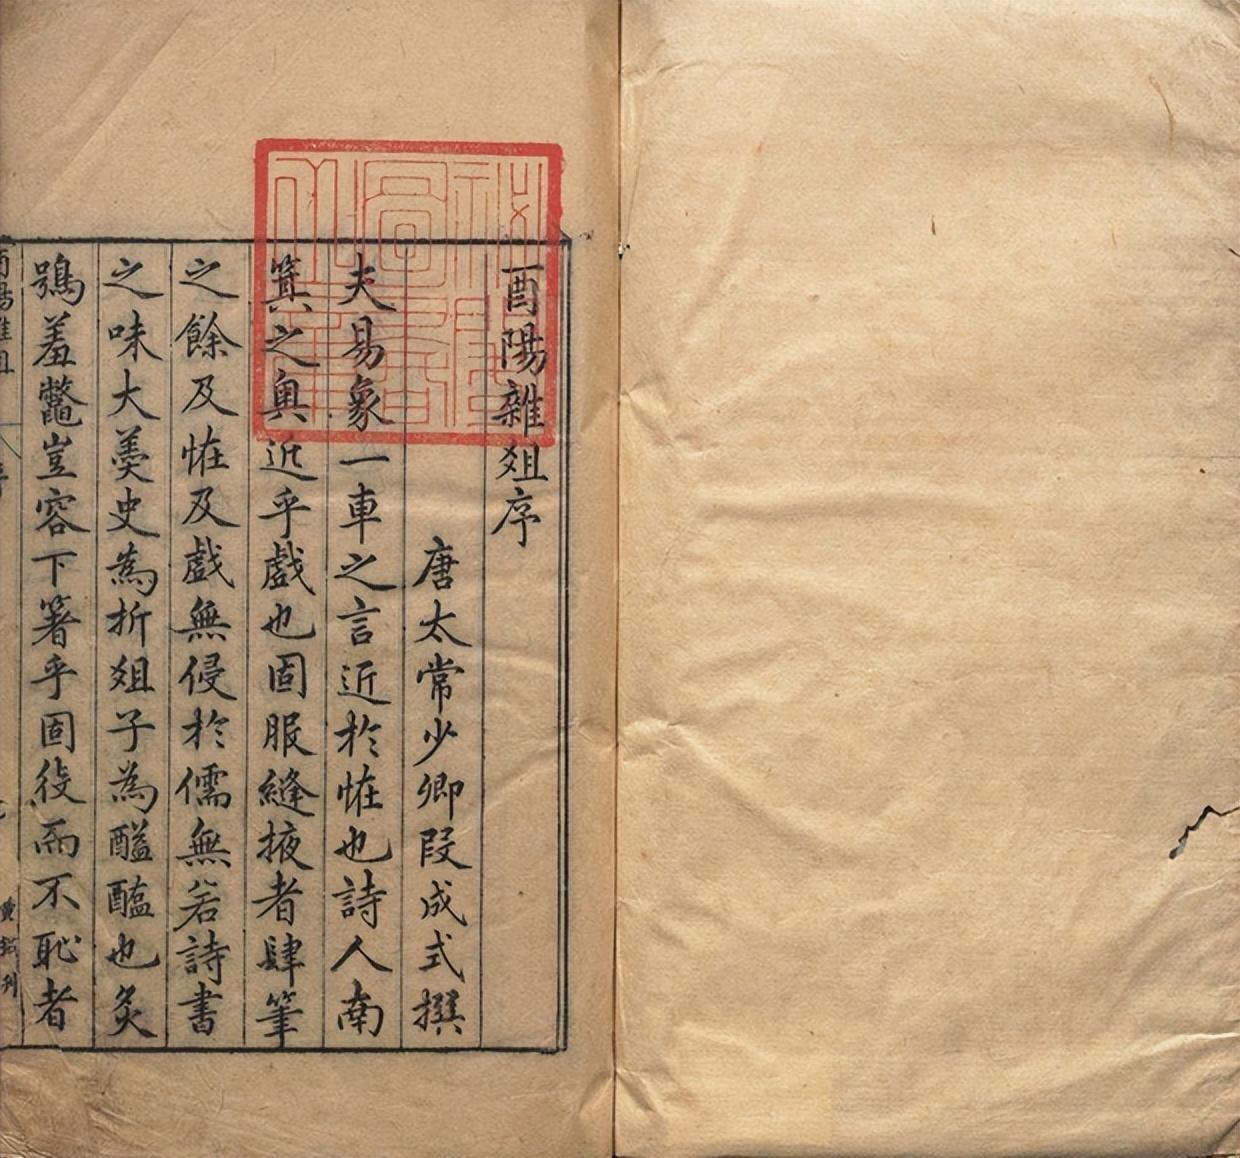 酉陽雜爼序
唐太常少卿段成式撰
夫易象一車之言近於恠也詩人南
箕之奥近乎戲也固服縫掖者肆筆
之餘及恠及戲無侵於儒無若詩書
之味大羮史為折爼子為醯醢也炙
鴞羞鼈豈容下箸乎固役而不恥者